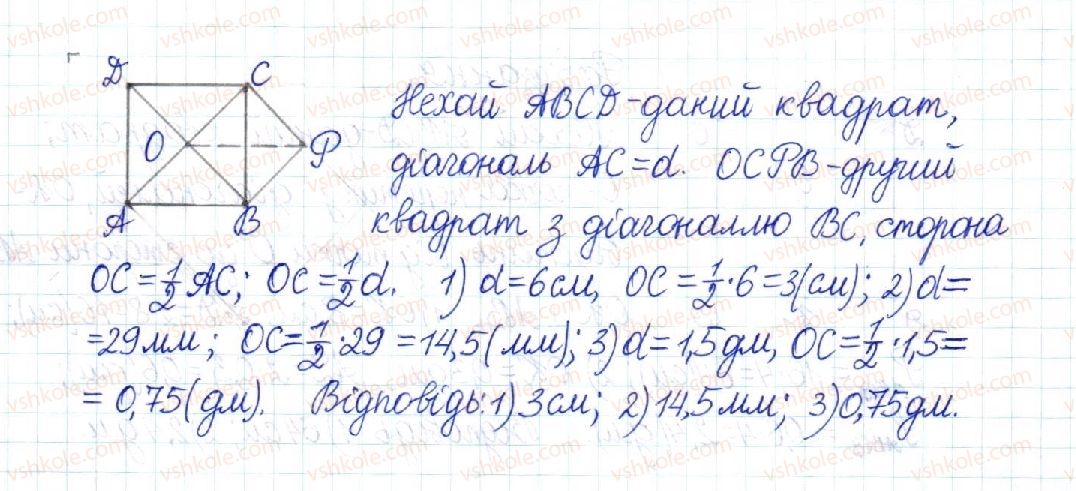 D C
O P
A B
Нехай ABCD - даний квадрат,
діагональ AC = d. OCPB - другий
квадрат з діагоналлю BC, сторона
OC = 1/2 AC; OC = 1/2 d. 1) d = 6 см, OC = 1/2 · 6 = 3 (см); 2) d =
= 29 мм; OC = 1/2 · 29 = 14,5 (мм); 3) d = 1,5 дм, OC = 1/2 · 1,5 =
= 0,75 (дм). Відповідь: 1) 3 см; 2) 14,5 мм; 3) 0,75 дм.
vshkole.com